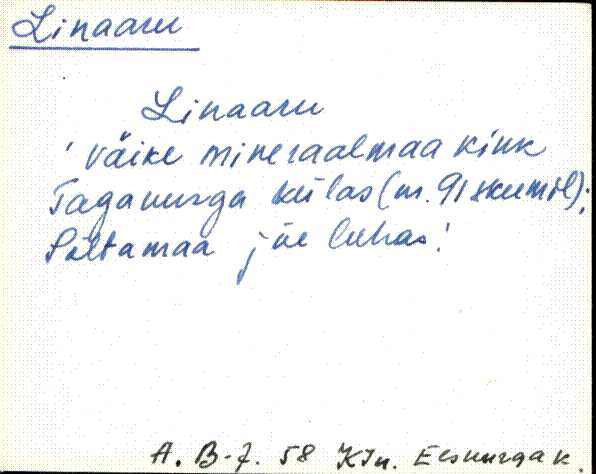 Linaaru
Linaaru
' väike mineraalmaa kink
Taganurga külas (nr. 91 skeemil);
Põltsamaa jõe luhas.'
A. B-7. 58 KJn. Eesnurga k.